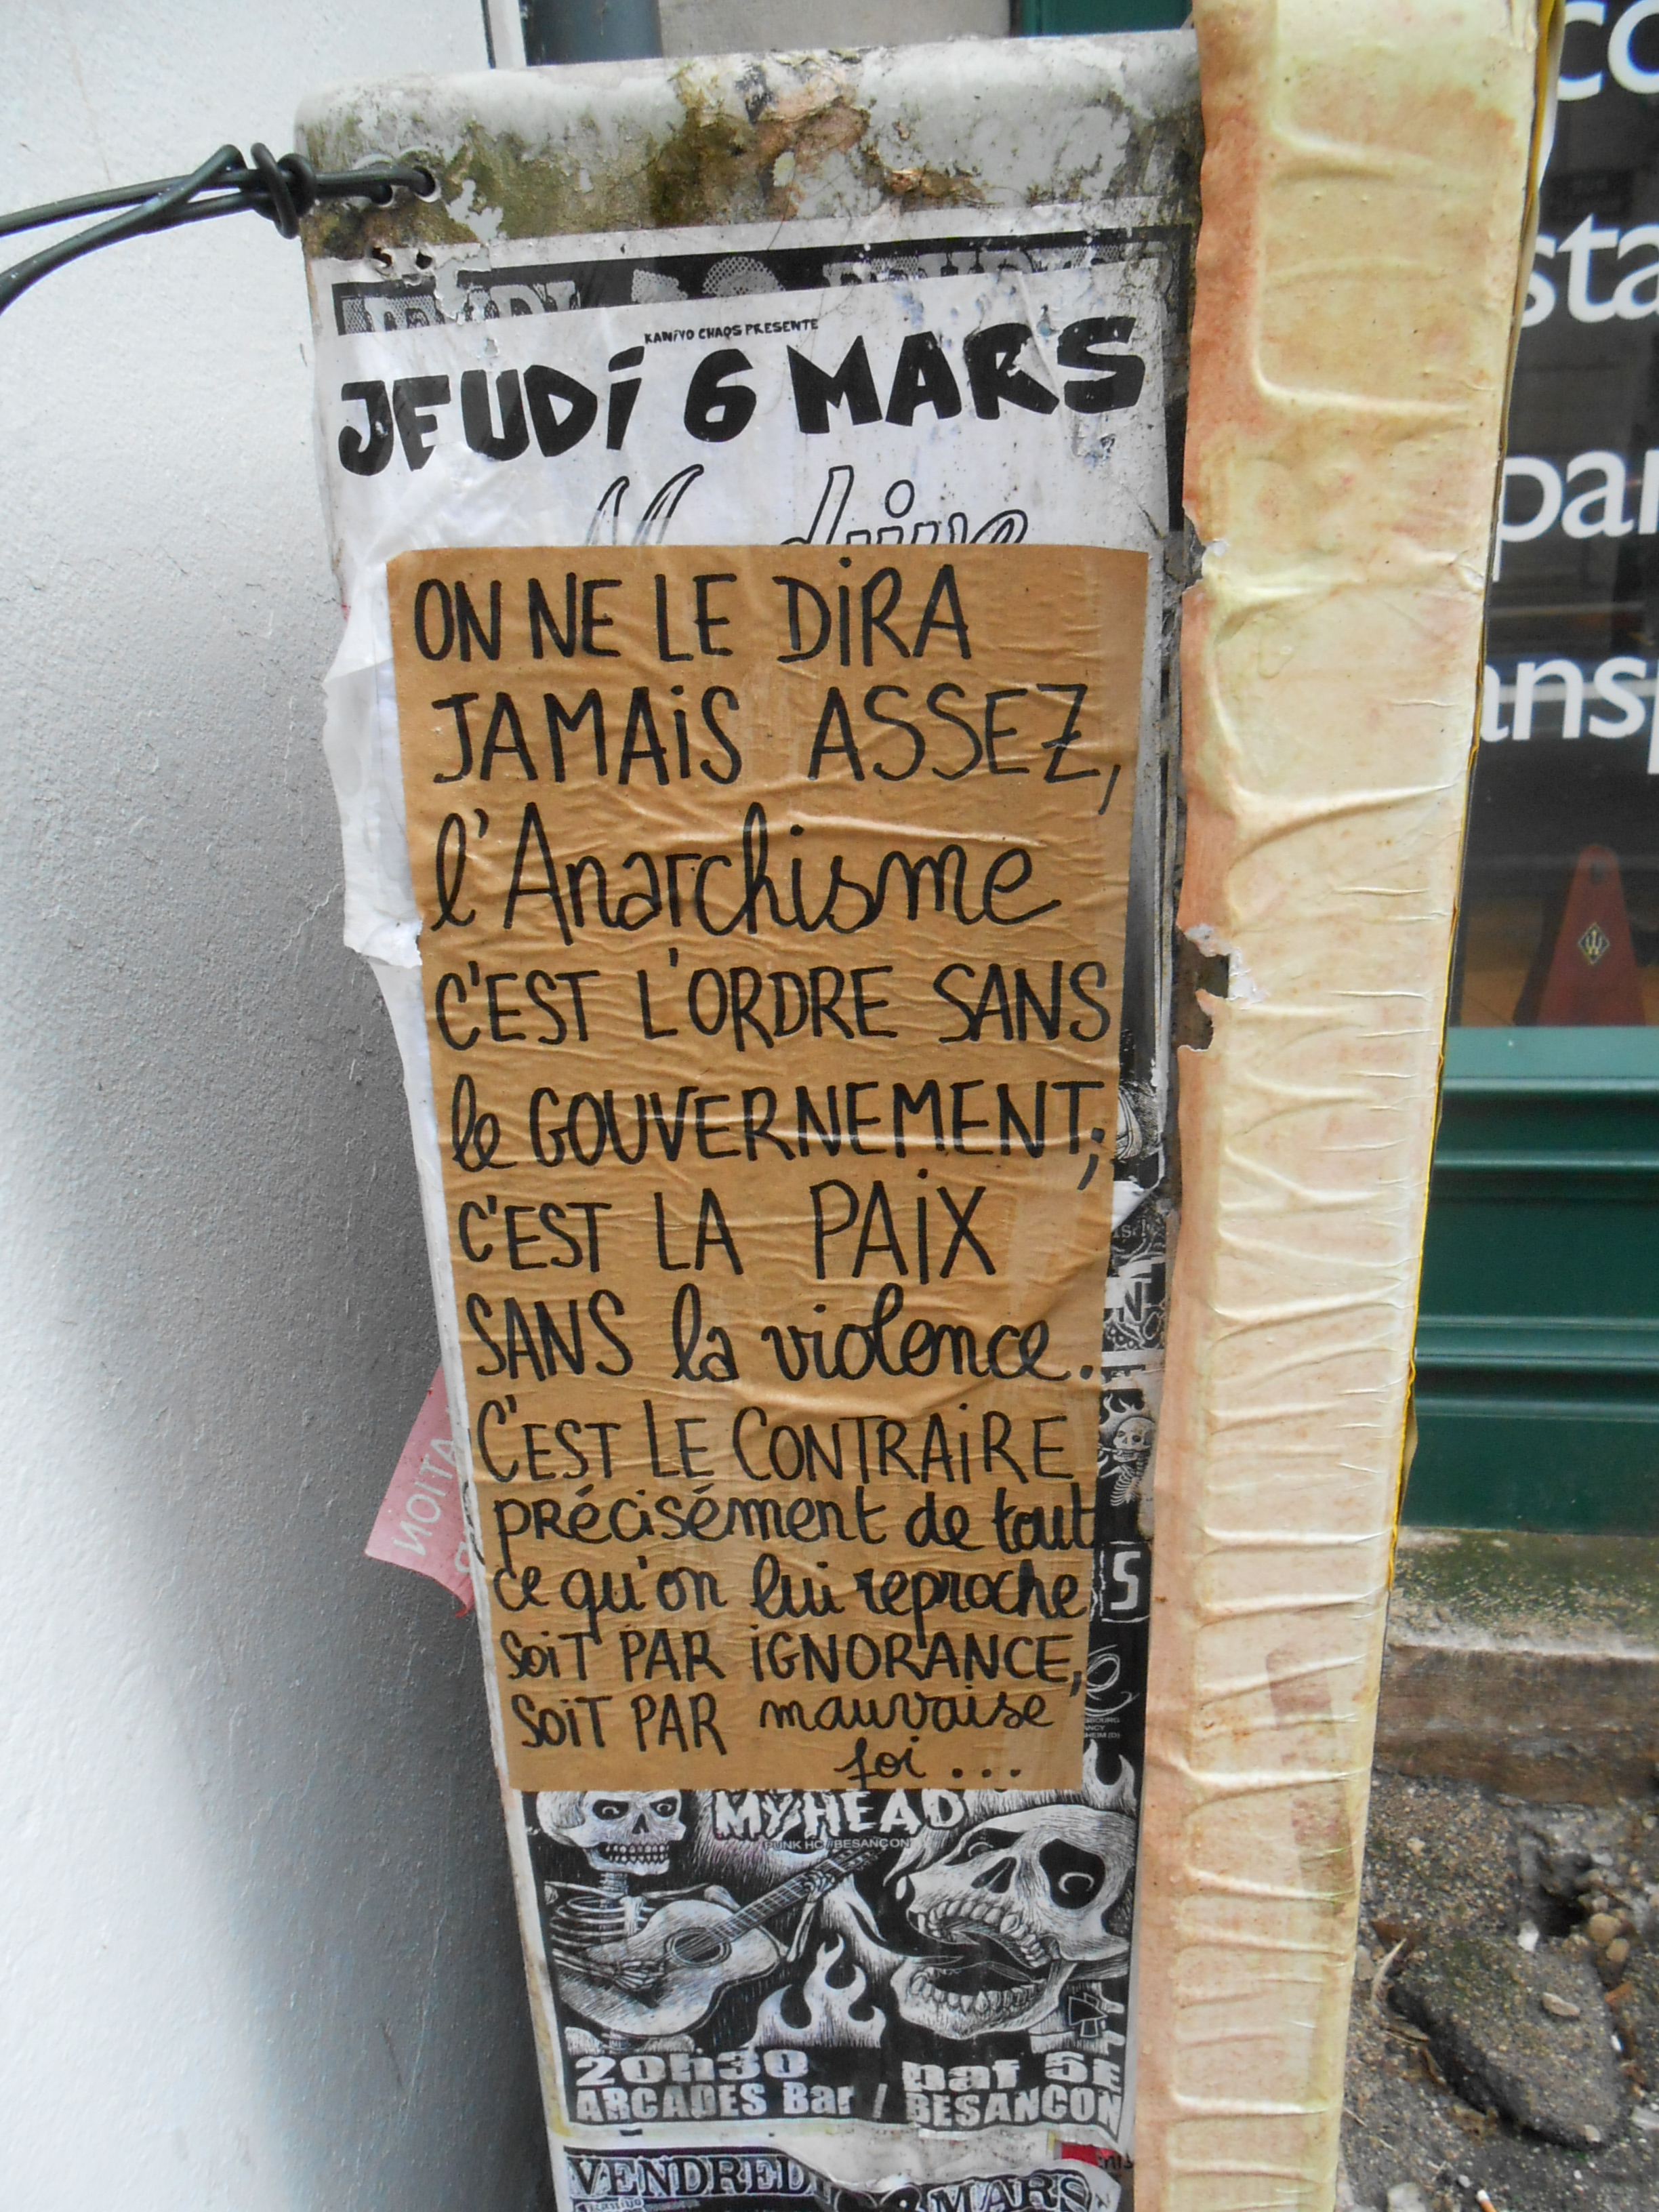 KANIYO CHAOS PRESENTE
JEUDi 6 MARS
ON NE LE DiRA
JAMAiS ASSEZ,
l'Anarchisme
C'EST L'ORDRE SANS
le GOUVERNEMENT;
C'EST LA PAiX
SANS la violence.
C'EST LE CONTRAiRE
précisément de tout
ce qu'on lui reproche
SOiT PAR iGNORANCE,
SOiT PAR mauvaise
foi ...
MY HEAD
PUNK HC / BESANÇON
20h30 paf 5E
ARCADES Bar / BESANCON
VENDREDI
MARS
co
sta
par
ansp